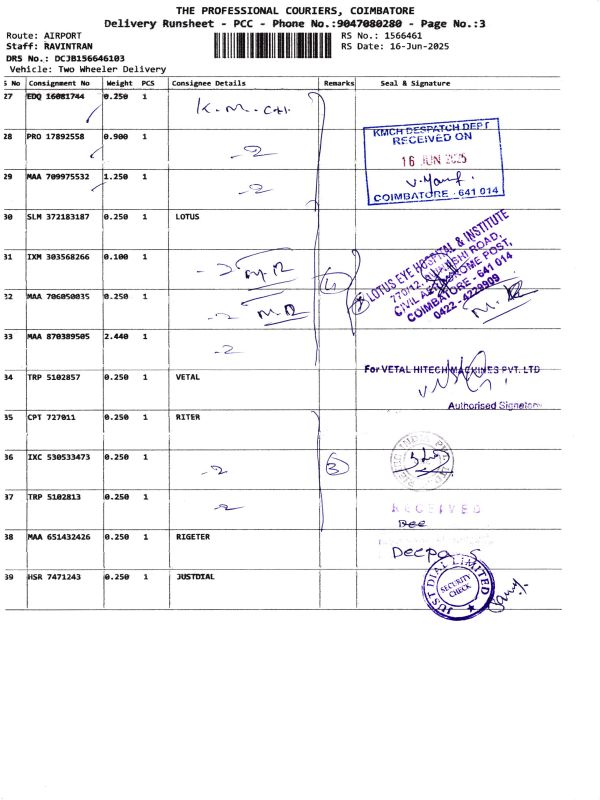 THE PROFESSIONAL COURIERS, COIMBATORE
Delivery Runsheet - PCC - Phone No.:9047080280 - Page No.:3
Route: AIRPORT
Staff: RAVINTRAN
DRS No.: DCJB156646103
Vehicle: Two Wheeler Delivery
RS No.: 1566461
RS Date: 16-Jun-2025
S No Consignment No Weight PCS Consignee Details Remarks Seal & Signature
27 EDQ 16081744 0.250 1 K.M.CH.
28 PRO 17892558 0.900 1
KMCH DESPATCH DEPT
RECEIVED ON
16 JUN 2025
COIMBATORE - 641 014
29 MAA 709975532 1.250 1
30 SLM 372183187 0.250 1 LOTUS
31 IXM 303568266 0.100 1
32 MAA 706050035 0.250 1
33 MAA 870389505 2.440 1
LOTUS EYE HOSPITAL & INSTITUTE
770/12, AVINASHI ROAD,
CIVIL AERODROME POST,
COIMBATORE - 641 014
0422 - 4229909
34 TRP 5102857 0.250 1 VETAL
For VETAL HITECH MACHINES PVT. LTD
Authorised Signatory
35 CPT 727011 0.250 1 RITER
36 IXC 530533473 0.250 1
3
37 TRP 5102813 0.250 1
RECEIVED
38 MAA 651432426 0.250 1 RIGETER
Deepa S
39 HSR 7471243 0.250 1 JUSTDIAL
JUST DIAL LIMITED
SECURITY
CHECK